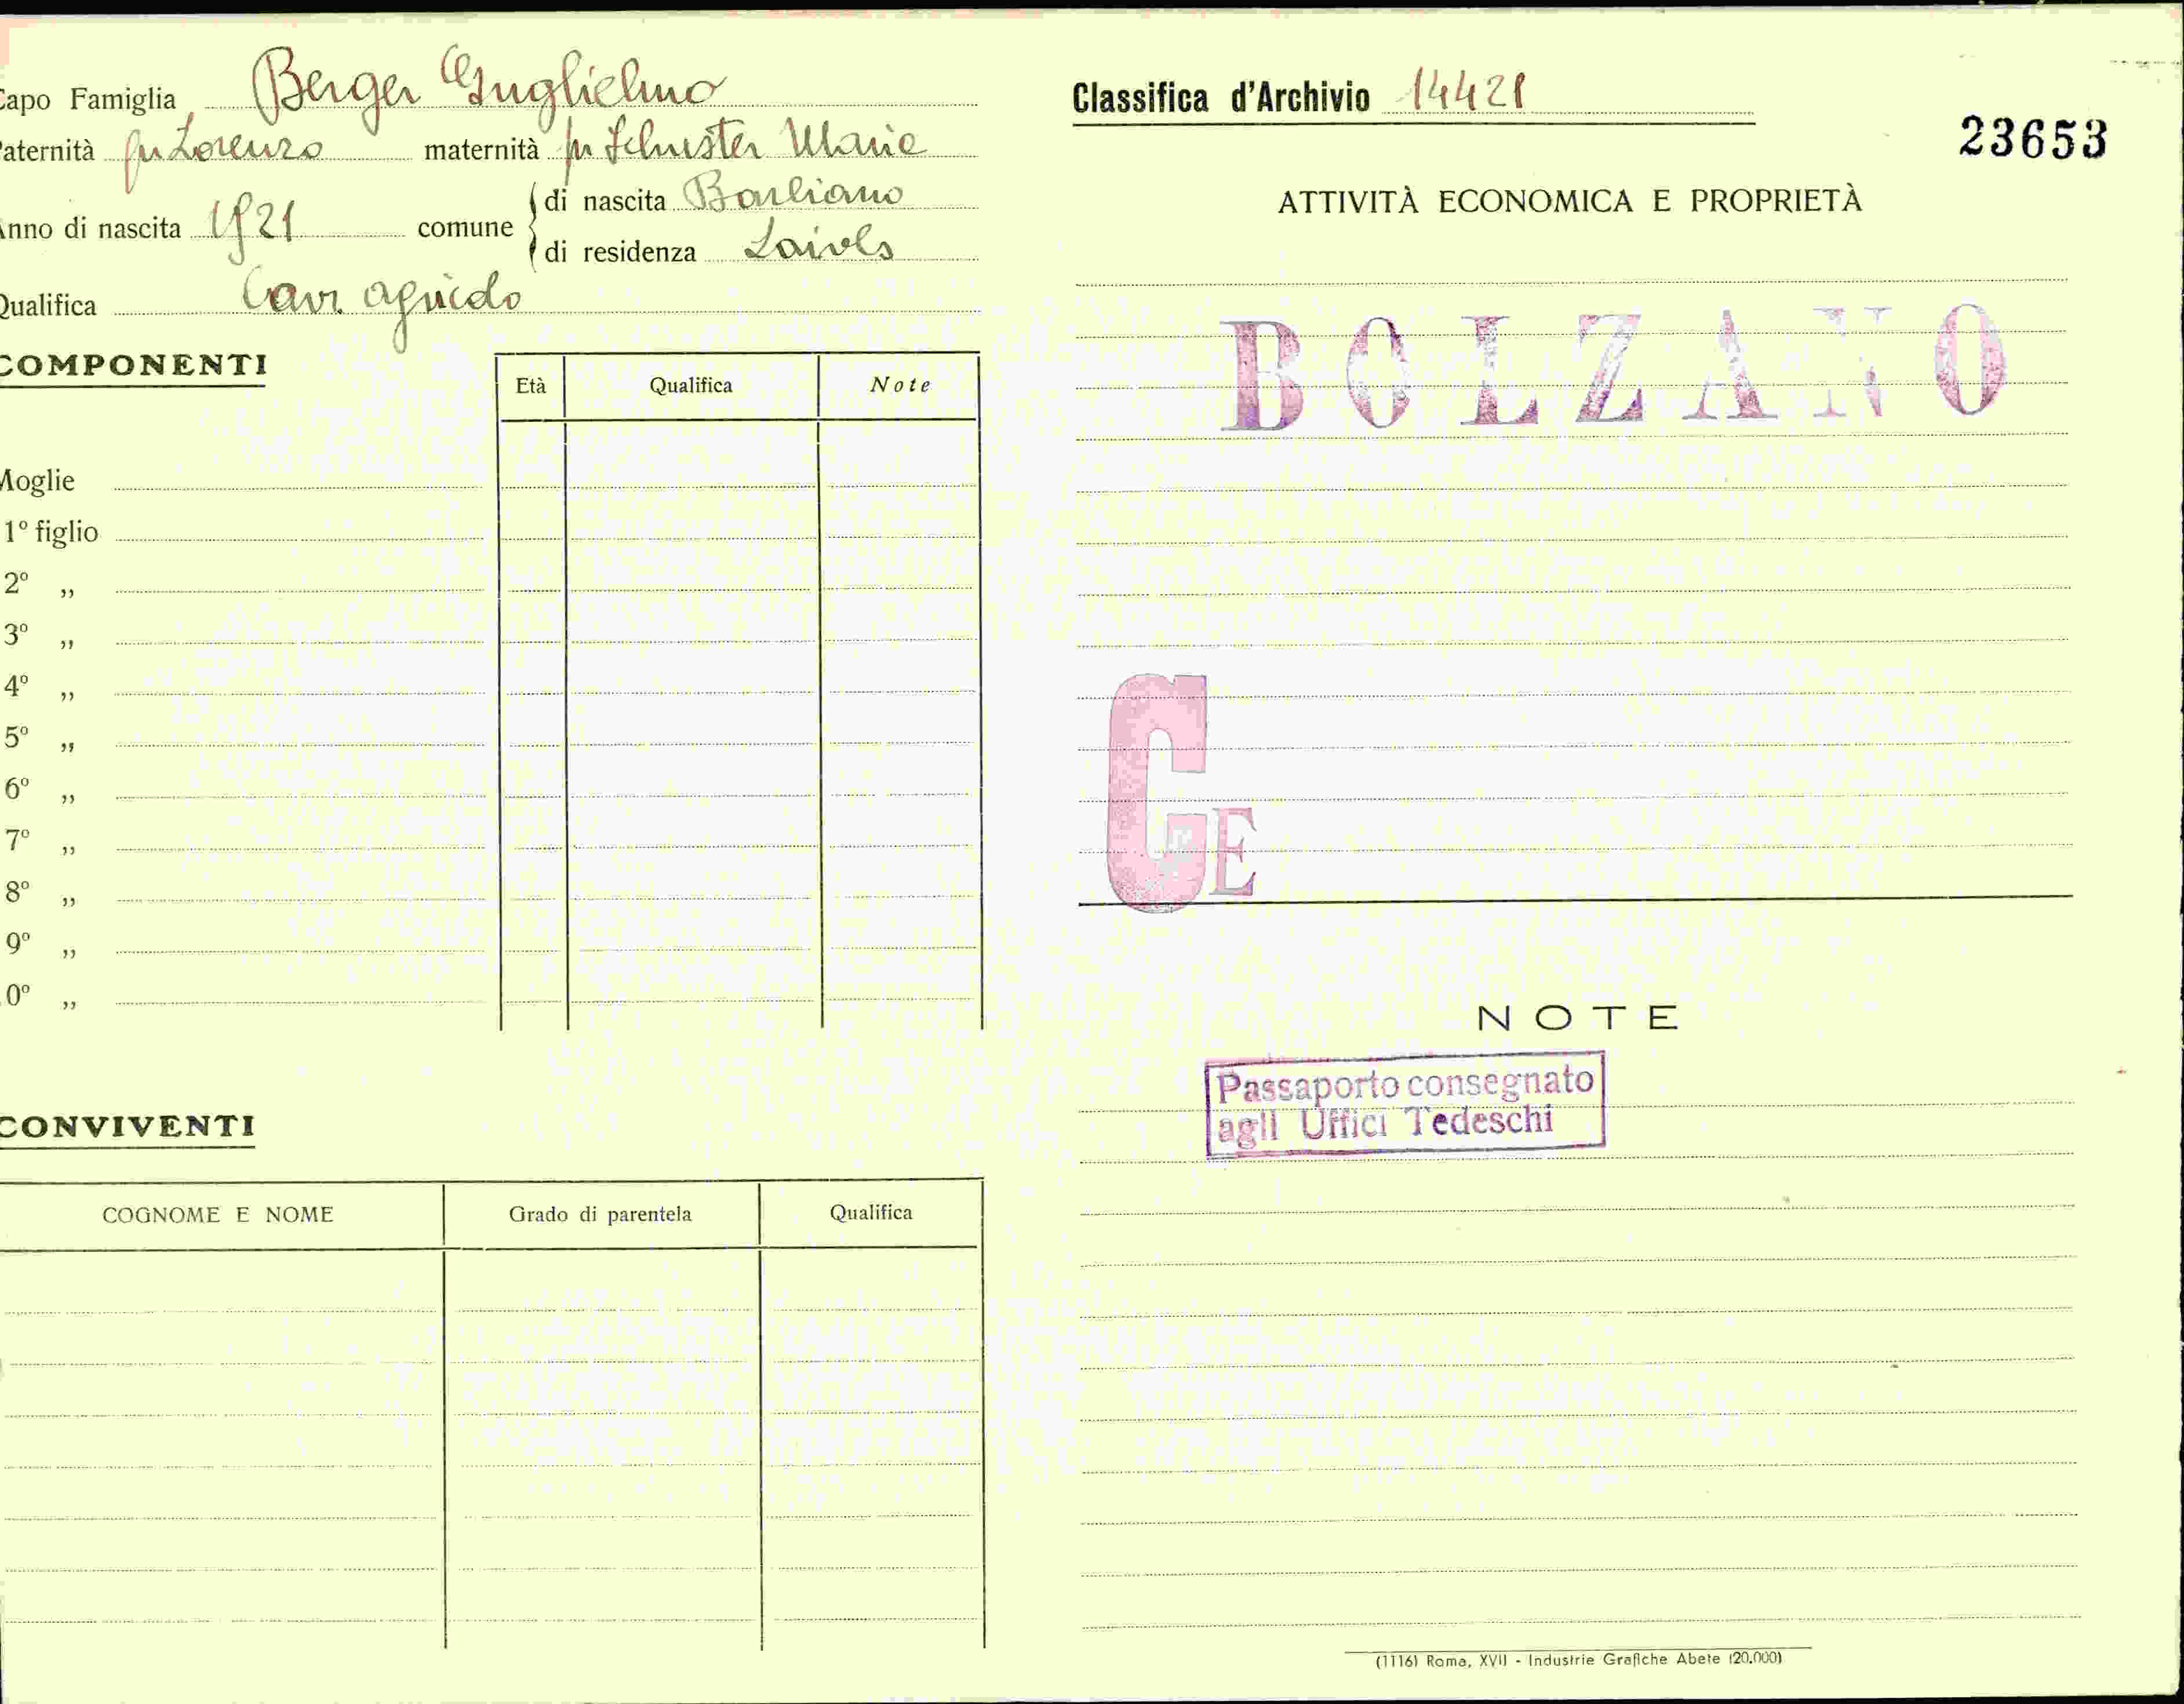 Capo Famiglia Berger Guglielmo
Paternità fu Lorenzo maternità fu Schuster Maria
Anno di nascita 1921 comune di nascita Barbiano
di residenza Laives
Qualifica Lavr. agricolo
COMPONENTI
Età Qualifica Note
Moglie
1º figlio
2º „
3º „
4º „
5º „
6º „
7º „
8º „
9º „
0º „
CONVIVENTI
COGNOME E NOME Grado di parentela Qualifica
Classifica d'Archivio 14421
23653
ATTIVITÀ ECONOMICA E PROPRIETÀ
BOLZANO
CE
NOTE
Passaporto consegnato
agli Uffici Tedeschi
(1116) Roma, XVII - Industrie Grafiche Abete (20.000)